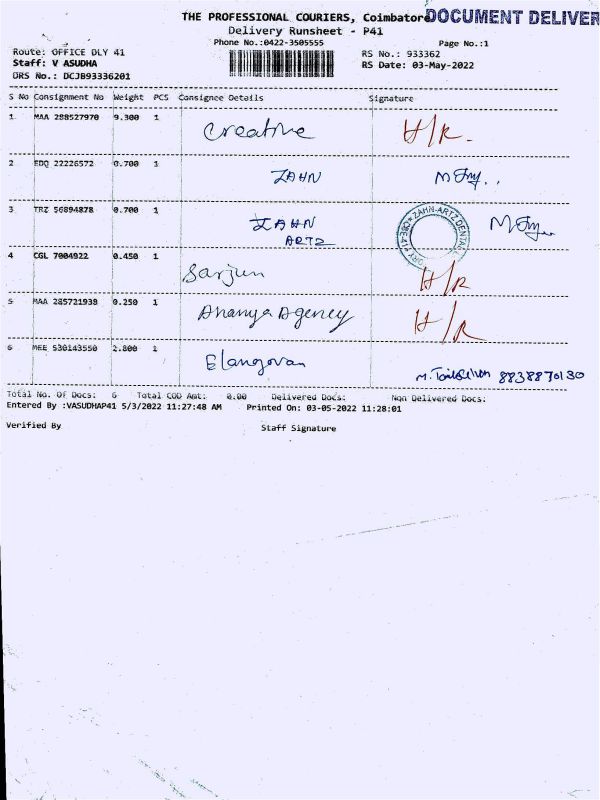 THE PROFESSIONAL COURIERS, Coimbatore
DOCUMENT DELIVER
Delivery Runsheet - P41
Phone No.:0422-3505555
Page No.:1
Route: OFFICE DLY 41
RS No.: 933362
Staff: V ASUDHA
RS Date: 03-May-2022
DRS No.: DCJB93336201
S No Consignment No Weight PCS Consignee Details Signature
1 MAA 288527970 9.300 1 Creative H/R.
2 EDQ 22226572 0.700 1 ZAHN
3 TRZ 56894878 0.700 1 ZAHN
ARTZ
ZAHN-ARTZ DENTAL
4 CGL 7004922 0.450 1 Sarjun H/R
5 MAA 285721938 0.250 1 Ananya Agency H/R
6 MEE 530143550 2.800 1 Elangovan
8838870130
Total No. Of Docs: 6 Total COD Amt: 0.00 Delivered Docs: Non Delivered Docs:
Entered By :VASUDHAP41 5/3/2022 11:27:48 AM Printed On: 03-05-2022 11:28:01
Verified By Staff Signature